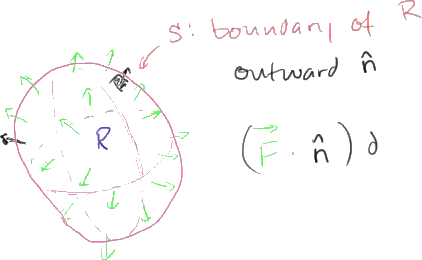 S: boundary of R
outward n̂
(F⃗ · n̂) d
R